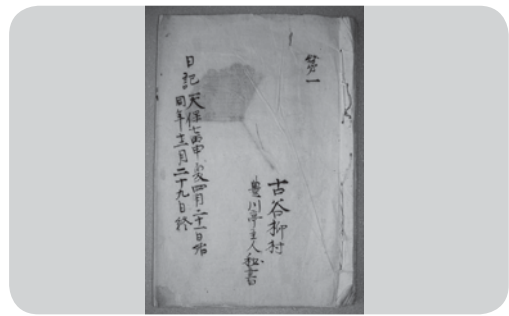 第一
古谷柳村
豊川亭主人秘書
日記
天保七丙申歳四月二十一日始
同年十二月二十九日終